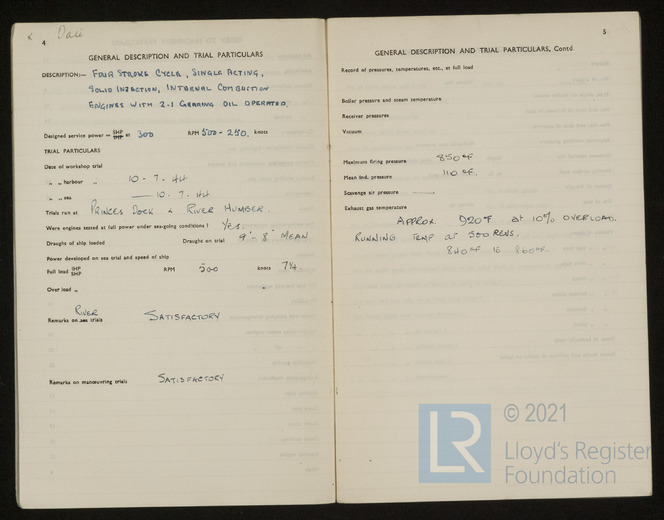 Dali
4
GENERAL DESCRIPTION AND TRIAL PARTICULARS
DESCRIPTION:— FOUR STROKE CYCLE, SINGLE ACTING,
SOLID INJECTION, INTERNAL COMBUSTION
ENGINES WITH 2-1 GEARING OIL OPERATED.
Designed service power = SHP at 300 RPM 500 - 250. knots
TRIAL PARTICULARS
Date of workshop trial
„ „ harbour „ 10 - 7. 44
„ „ sea 10 - 7. 44
Trials run at PRINCES DOCK & RIVER HUMBER.
Were engines tested at full power under sea-going conditions? Yes.
Draught of ship loaded Draught on trial 9' - 8" MEAN
Power developed on sea trial and speed of ship
Full load IHP SHP RPM 500 knots 7¼
Over load „ „
RIVER
Remarks on sea trials SATISFACTORY
Remarks on manœuvring trials SATISFACTORY
5
GENERAL DESCRIPTION AND TRIAL PARTICULARS, Contd.
Record of pressures, temperatures, etc., at full load
Boiler pressure and steam temperature
Receiver pressures
Vacuum
Maximum firing pressure 850
Mean ind. pressure 110
Scavenge air pressure
Exhaust gas temperature
APPROX 920°F at 10% OVERLOAD.
RUNNING TEMP at 500 REVS.
840°F to 860°F.
LR
© 2021
Lloyd's Register
Foundation